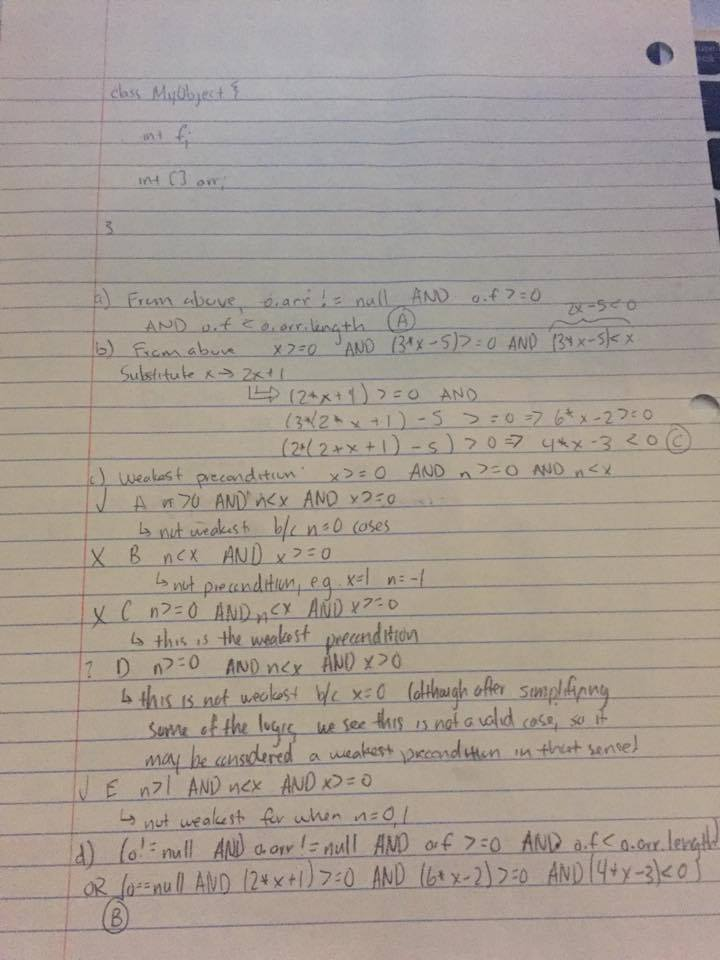 class MyObject {
int f;
int [] arr;
}
a) From above, o.arr != null AND o.f >= 0
AND o.f < o.arr.length (A)
2x-5<0
b) From above x>=0 AND (3*x-5)>=0 AND (3*x-5)<x
Substitute x → 2x+1
↳ (2*x+1) >=0 AND
(3*(2*x+1)-5 >=0 => 6*x-2>=0
(2*(2*x+1)-5) >0 => 4*x-3 <0 (C)
c) Weakest precondition: x>=0 AND n>=0 AND n<x
√ A n>0 AND n<x AND x>=0
↳ not weakest b/c n=0 cases
X B n<x AND x>=0
↳ not precondition, e.g. x=1 n=-1
X C n>=0 AND n<x AND x>=0
↳ this is the weakest precondition
? D n>=0 AND n<x AND x>0
↳ this is not weakest b/c x=0 (although after simplifying
some of the logic, we see this is not a valid case, so it
may be considered a weakest precondition in that sense)
√ E n>1 AND n<x AND x>=0
↳ not weakest for when n=0,1
d) (o!=null AND o.arr!=null AND o.f >=0 AND o.f<o.arr.length)
OR (o==null AND (2*x+1)>=0 AND (6*x-2)>=0 AND (4*x-3)<0)
(B)